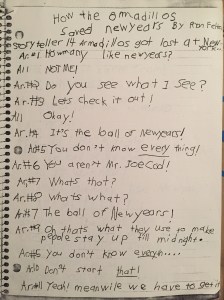 How the 8madillos
saved newyears By Ron Feiner
Storyteller 14 Armadillos got lost at New
Ar.#1 How many like newyears?
All NOT ME!
Ar.#2 Do you see what I see?
Ar.#3 Lets check it out!
All Okay!
Ar.#4 It's the ball of Newyears!
Ar#5 You don't know every thing!
Ar#6 You aren't Mr. Joe Cool!
Ar#7 Whats that?
Ar#8 whats what?
Ar#7 The ball of Newyears!
Ar#9 Oh thats what they use to make
people stay up till midnight.
Ar#5 you don't know every....
Don't start that!
Yeah! meanwhile we have to get it